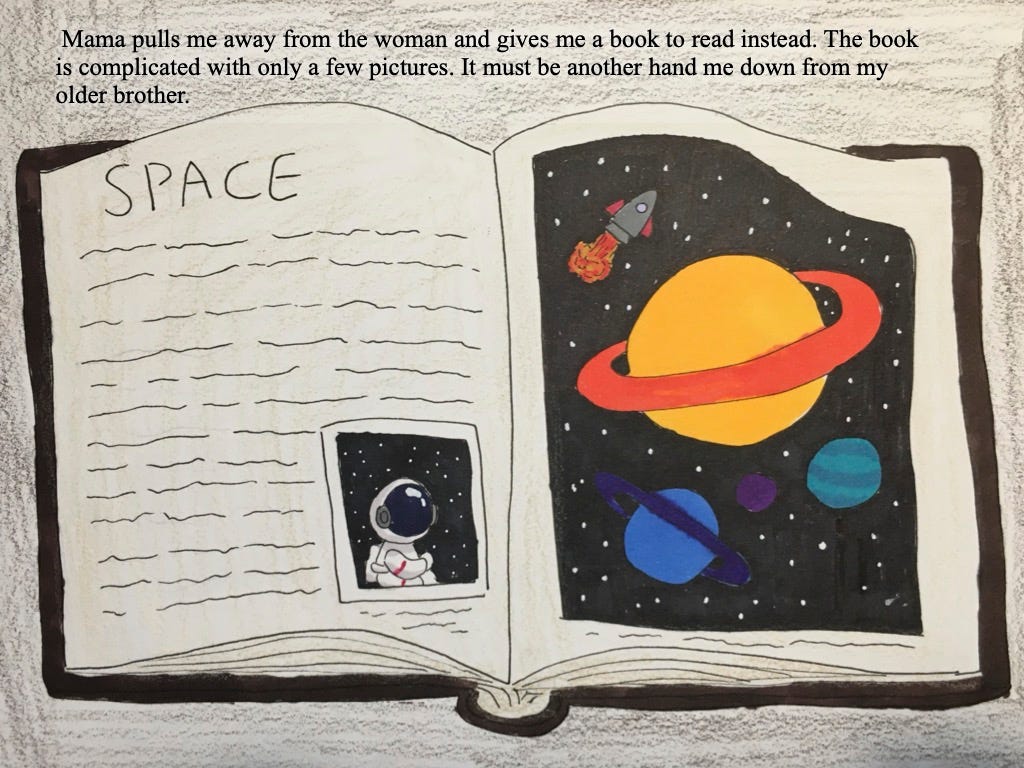 Mama pulls me away from the woman and gives me a book to read instead. The book
is complicated with only a few pictures. It must be another hand me down from my
older brother.
SPACE